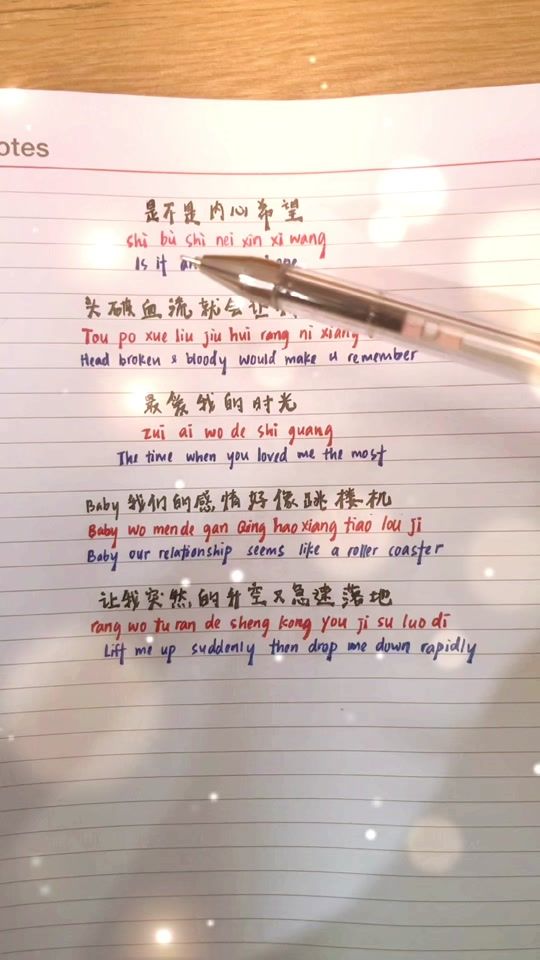 otes
是不是内心希望
shì bù shì nei xin xi wang
Is it
头破血流就会让
Tou po xue liu jiu hui rang ni xiang
Head broken & bloody would make u remember
最爱我的时光
zui ai wo de shi guang
The time when you loved me the most
Baby 我们的感情好像跳楼机
Baby wo men de gan Qing hao xiang tiao lou ji
Baby our relationship seems like a roller coaster
让我突然的升空又急速落地
rang wo tu ran de sheng kong you ji su luo di
Lift me up suddenly then drop me down rapidly